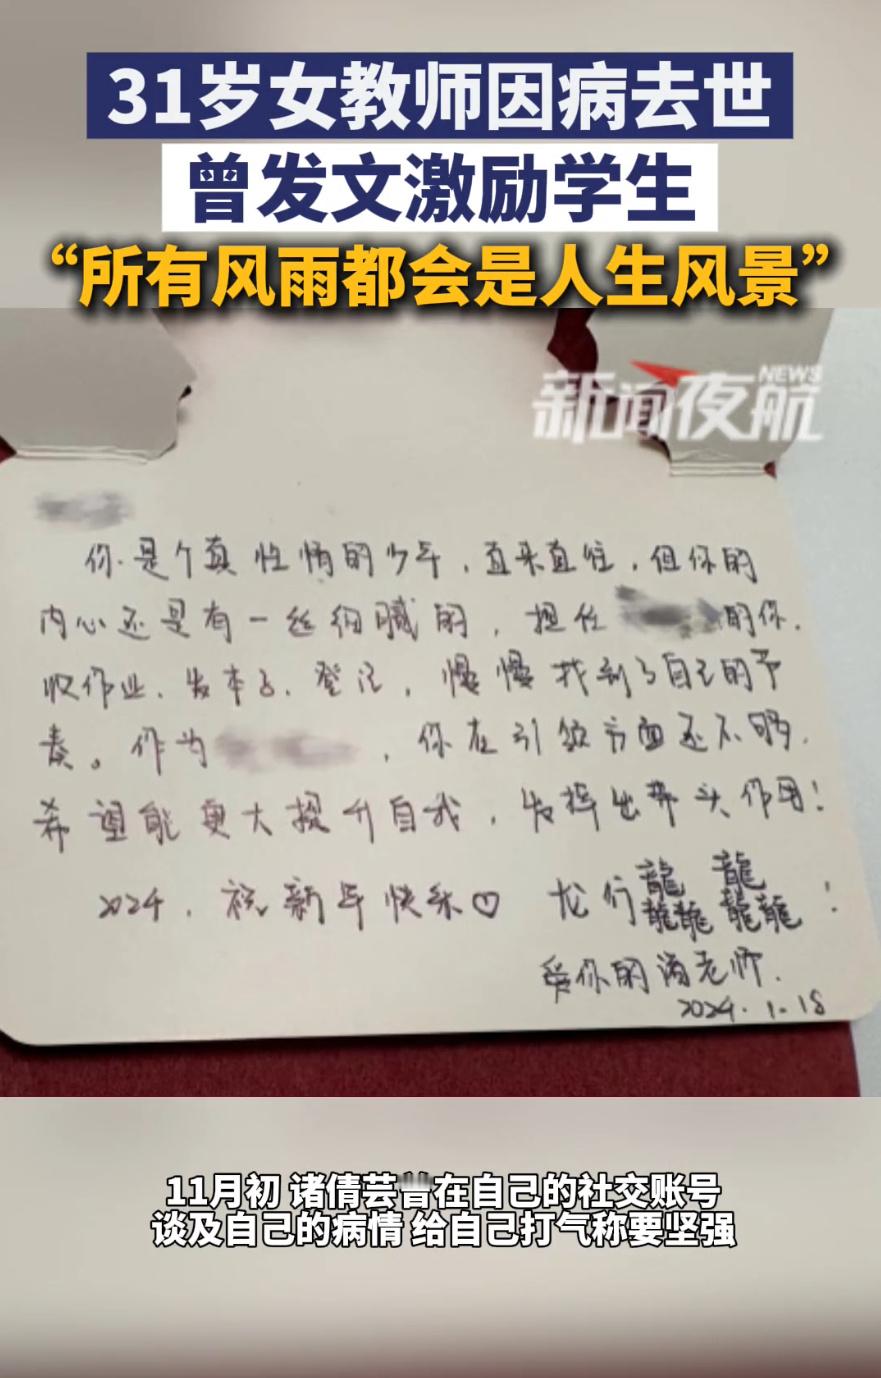 31岁女教师因病去世
曾发文激励学生
“所有风雨都会是人生风景”
NEWS
新闻夜航
你是个真性情的少年，直来直往，但你的
内心还是有一丝细腻的，担任 的你，
收作业、发本子、登记，慢慢找到了自己的节
奏。作为 ，你在引领方面还不够，
希望能更大提升自我，发挥出带头作用！
2024，祝新年快乐♡ 龙行龘龘！
爱你的诸老师．
2024．1．18
11月初 诸倩芸曾在自己的社交账号
谈及自己的病情 给自己打气称要坚强